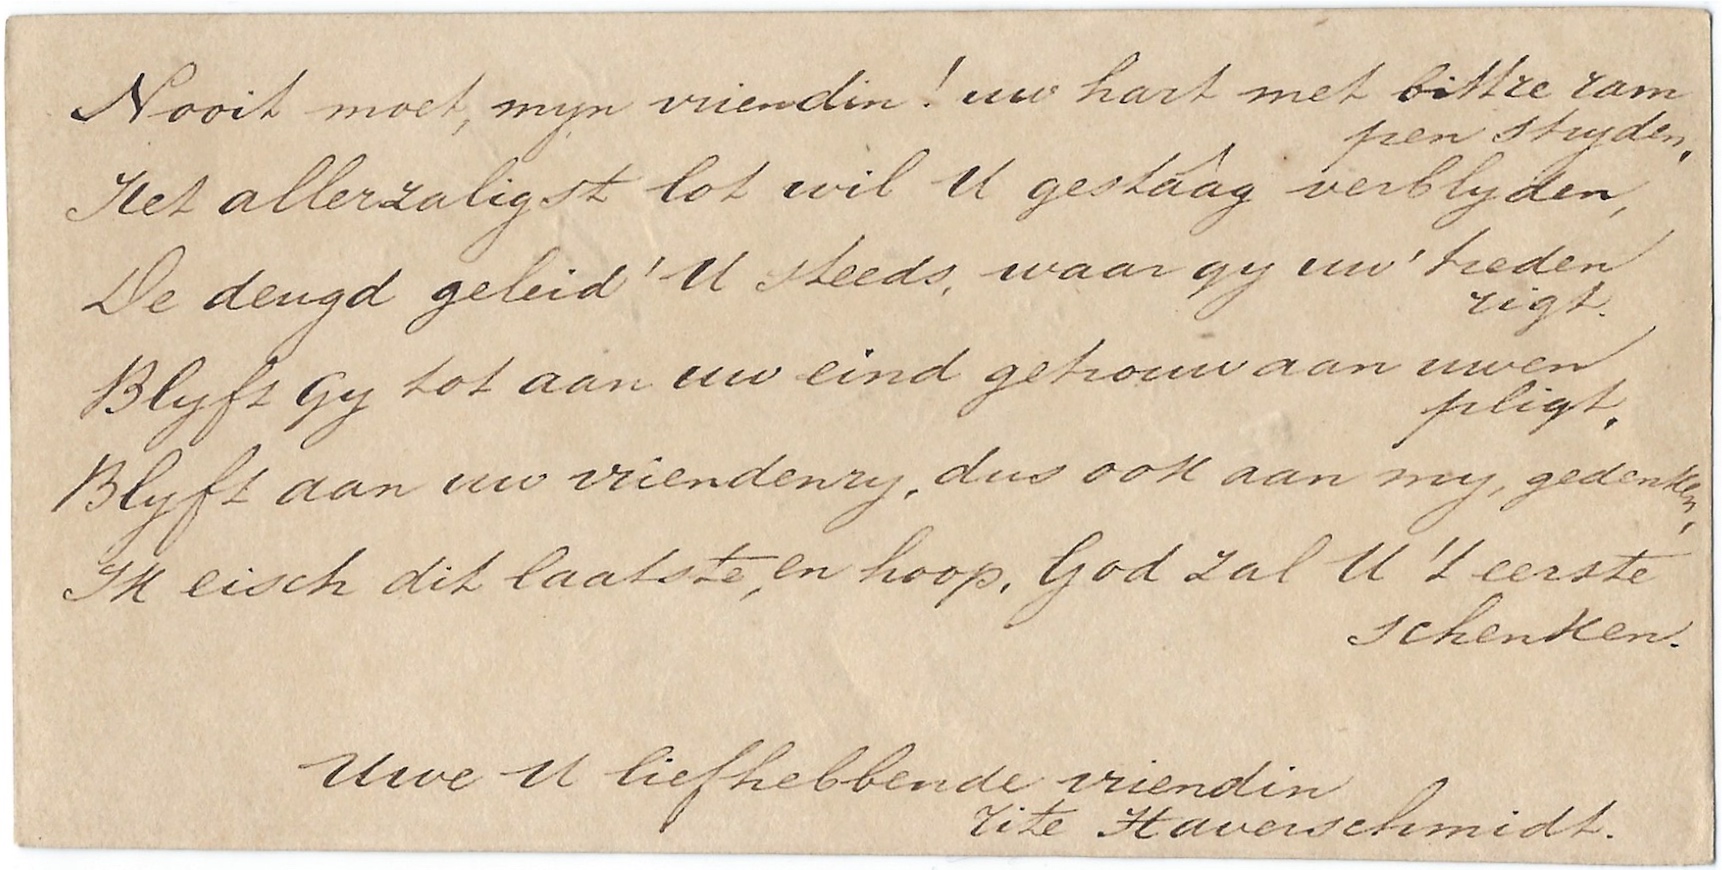 Nooit moet, myn vriendin! uw hart met bittre ram
pen stryden,
Het allerzaligst lot wil U gestâag verblyden,
De deugd geleid' U steeds, waar gy uw' treden
rigt.
Blyft Gy tot aan uw eind getrouw aan uwen
pligt,
Blyft aan uw vriendenry, dus ook aan my, gedenken,
Ik eisch dit laatste, en hoop, God zal U 't eerste
schenken.
Uwe U liefhebbende vriendin
Rite Haverschmidt.